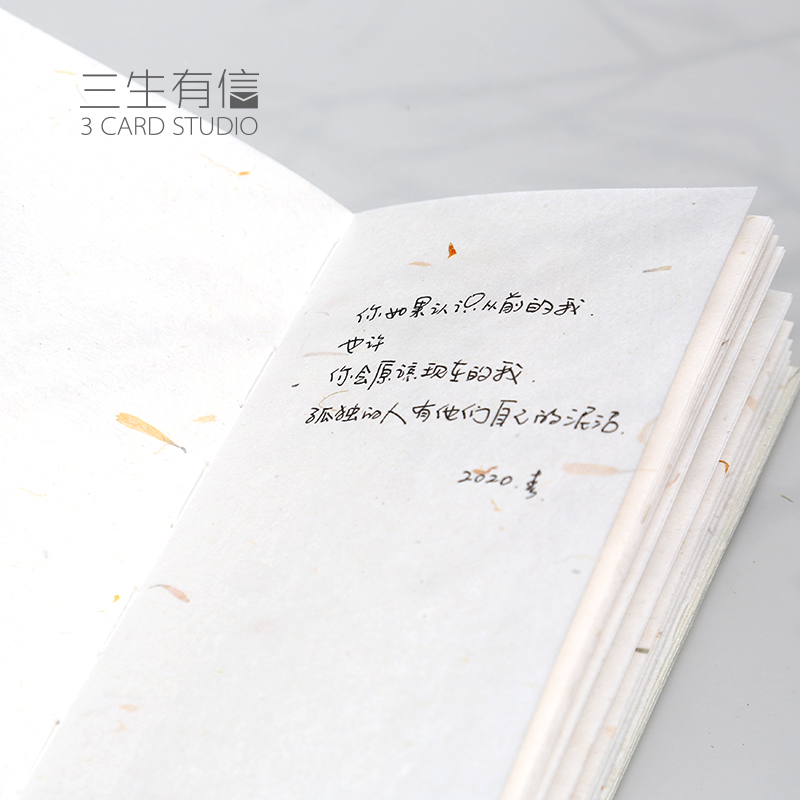 三生有信
3 CARD STUDIO
你如果认识从前的我.
也许
你会原谅现在的我.
孤独的人有他们自己的泥沼.
2020.春.